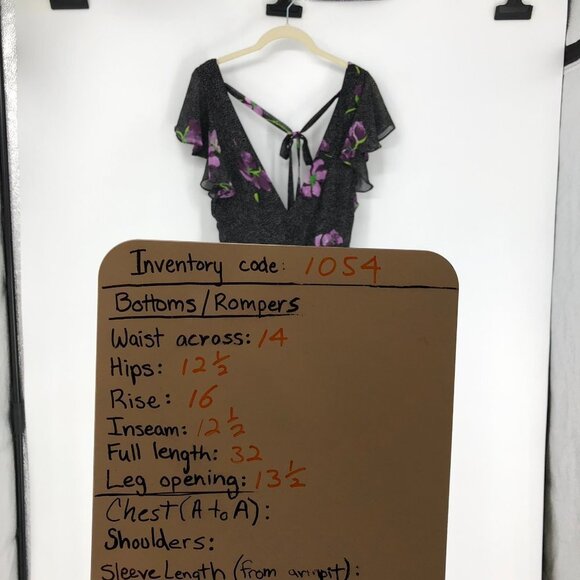 Inventory code: 1054
Bottoms/Rompers
Waist across: 14
Hips: 12 1/2
Rise: 16
Inseam: 12 1/2
Full length: 32
Leg opening: 13 1/2
Chest (A to A):
Shoulders:
Sleeve Length (from armpit):